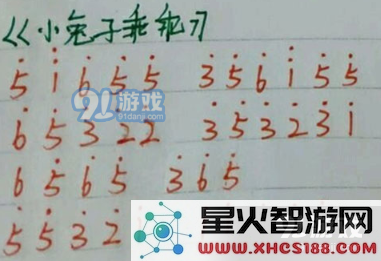 《小兔子乖乖》
5̇ 1̇ 6̇ 5̇ 5̇ 3̇ 5̇ 6̇ 1̇ 5̇ 5̇
91游戏
91danji.com
6̇ 5̇ 3̇ 2̇ 2̇ 3̇ 5̇ 3̇ 2̇ 3̇ 1̇
6̇ 5̇ 6̇ 5̇ 3̇ 6̇ 5̇
5̇ 5̇ 3̇ 2̇
星火智游网
WWW.XHCS188.COM